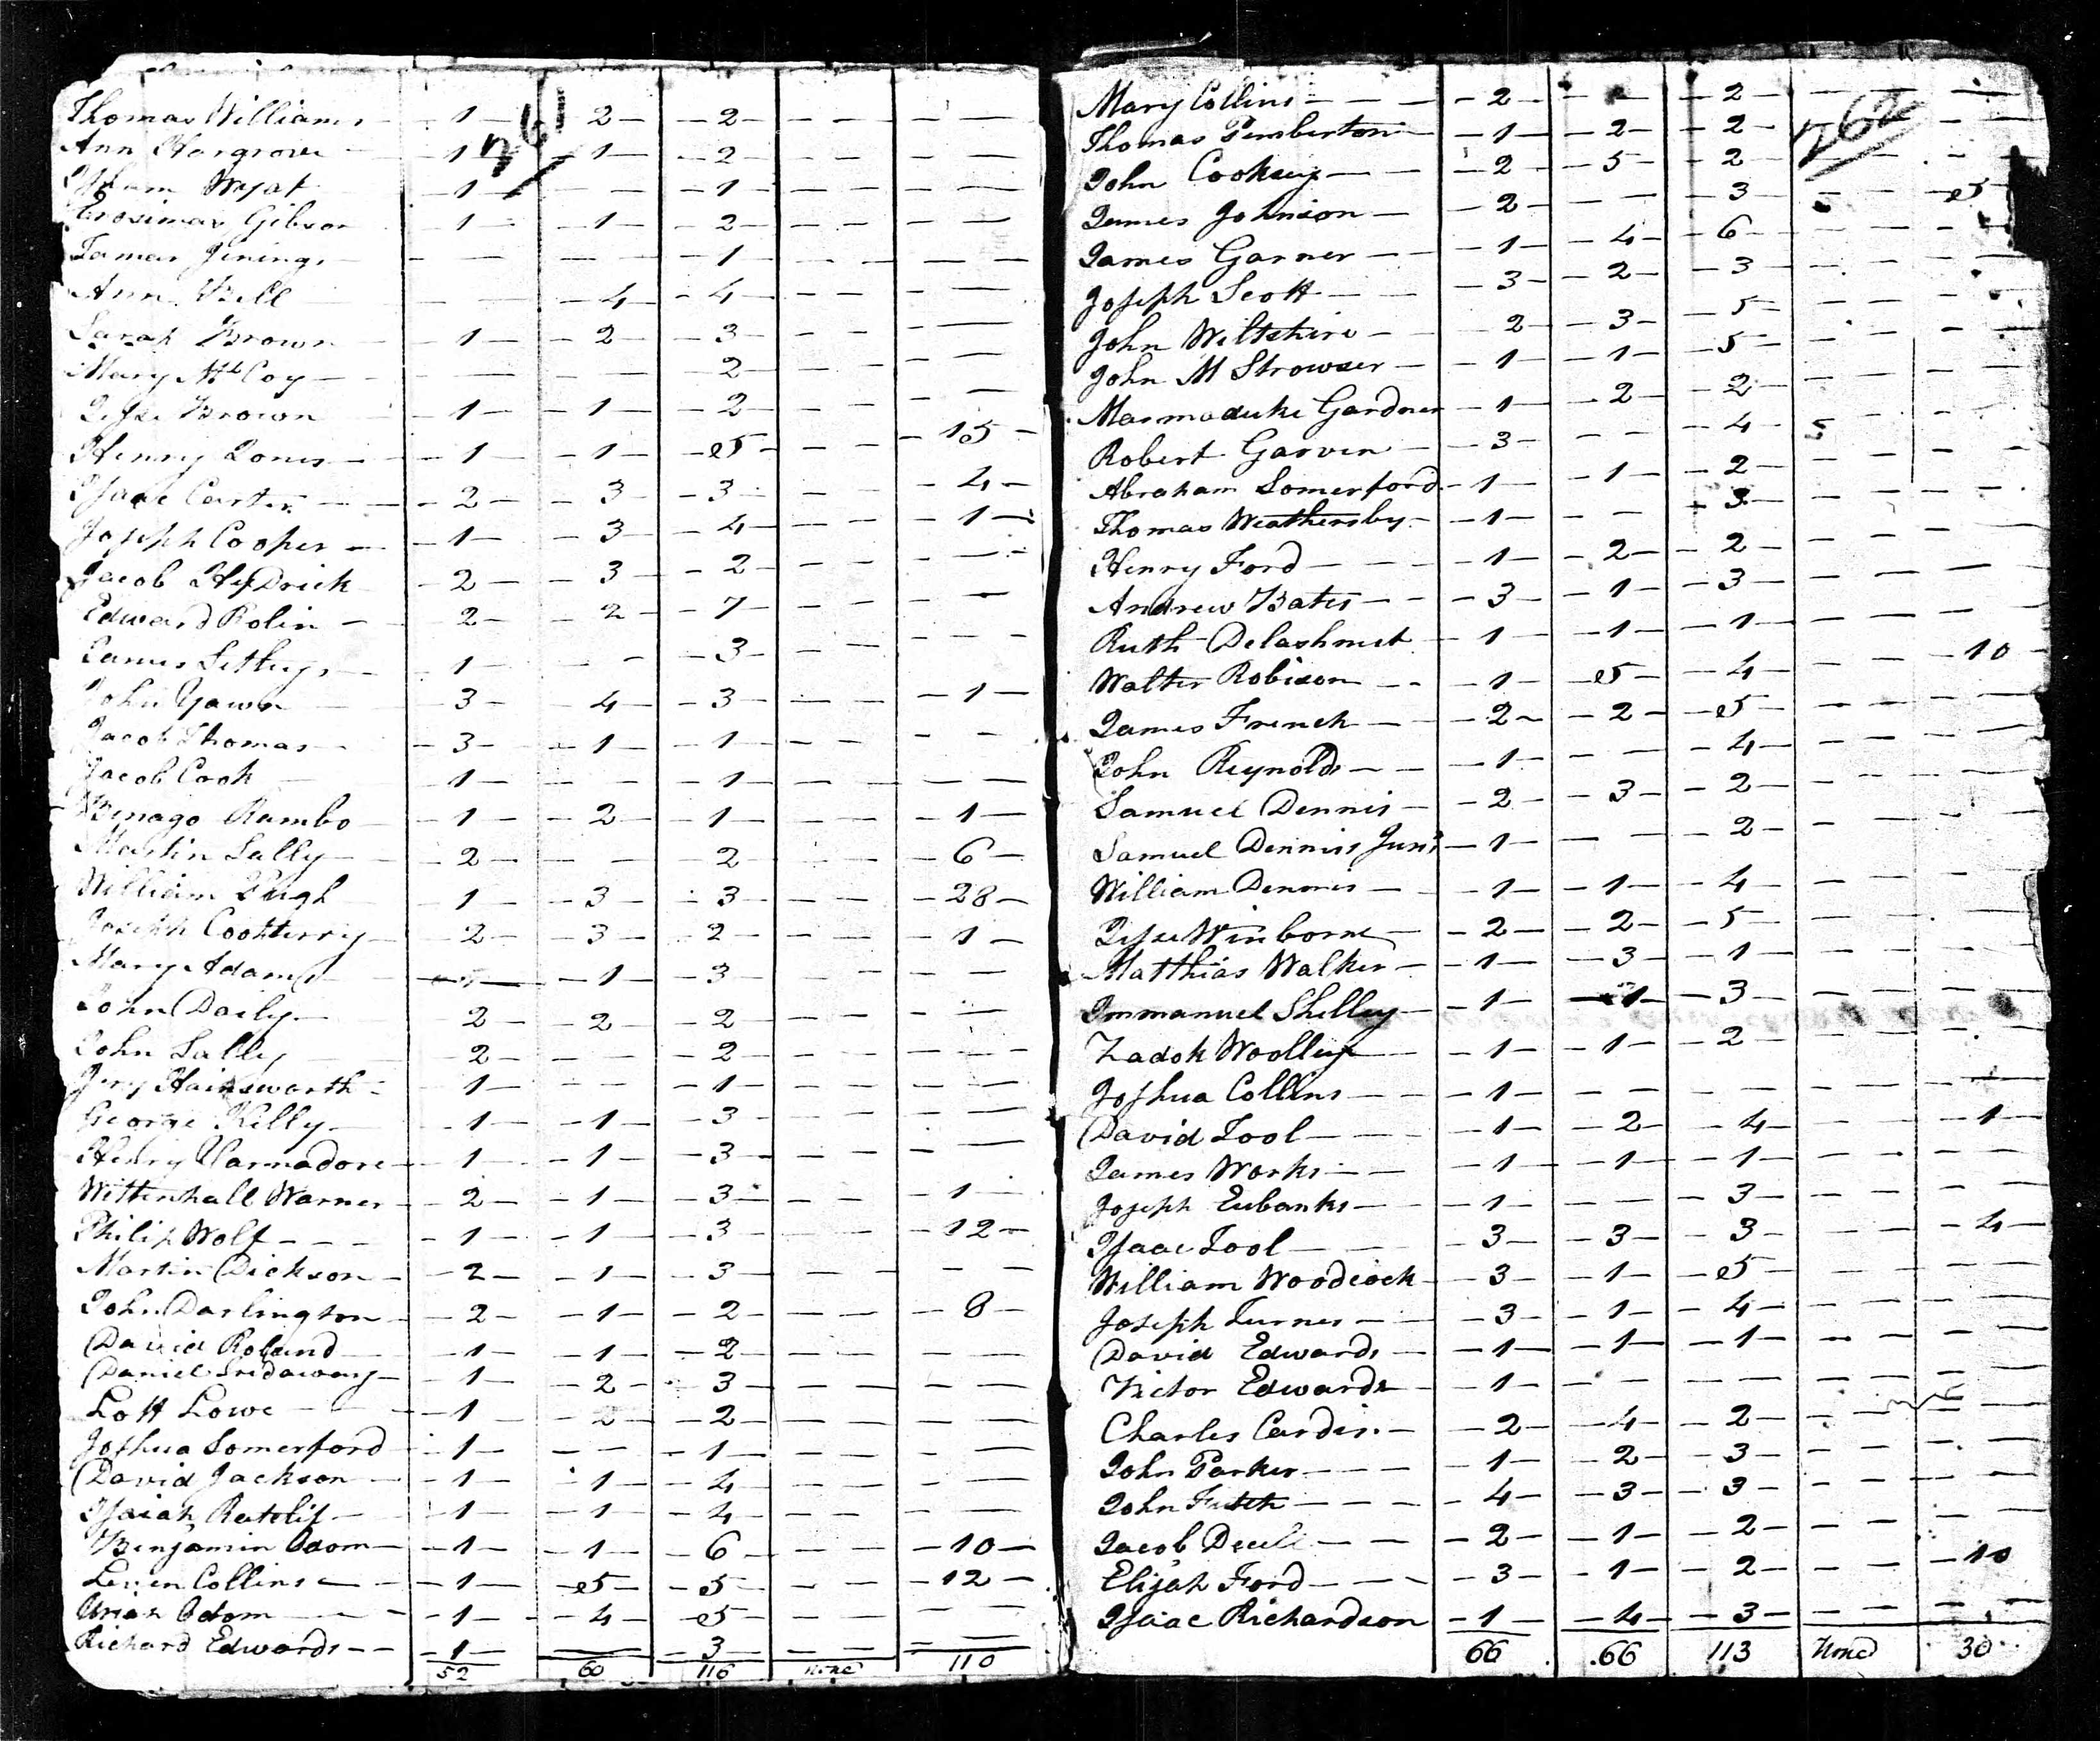 261
Thomas Williams - 1 - 2 - 2 - - -
Ann Hargrove - 1 - 1 - 2 - - -
Wyat - 1 - - - 1 - - -
Gibson - 1 - 1 - 2 - - -
Tamar Jenings - - - 1 - - -
Ann Bell - - 4 - 4 - - -
Sarah Brown - 1 - 2 - 3 - - -
Mary McCoy - - - 2 - - -
Jesse Brown - 1 - 1 - 2 - - -
Henry Jones - 1 - 1 - 5 - - - 15 -
Isaac Carter - 2 - 3 - 3 - - - 4 -
Joseph Cooper - 1 - 3 - 4 - - - 1 -
Jacob - 2 - 3 - 2 - - -
Edward Rolin - 2 - 2 - 7 - - -
James - 1 - - 3 - - -
John Yawn - 3 - 4 - 3 - - - 1 -
Jacob Thomas - 3 - 1 - 1 - - -
Jacob Cook - 1 - - - 1 - - -
Benago Rambo - 1 - 2 - 1 - - - 1 -
Martin Sally - 2 - - 2 - - - 6 -
William Pugh - 1 - 3 - 3 - - - 28 -
Joseph - 2 - 3 - 2 - - - 1 -
Mary Adams - - 1 - 3 - - -
John Daily - 2 - 2 - 2 - - -
John Sally - 2 - - - 2 - - -
Jery Hainsworth - 1 - - - 1 - - -
George Kelly - 1 - 1 - 3 - - -
Henry Varnadore - 1 - 1 - 3 - - -
Wittenhall Warner - 2 - 1 - 3 - - - 1 -
Philip Wolf - 1 - 1 - 3 - - - 12 -
Martin Dickson - 2 - 1 - 3 - - -
John Darlington - 2 - 1 - 2 - - - 8 -
David Roland - 1 - 1 - 2 - - -
Daniel - 1 - 2 - 3 - - -
Lott Lowe - 1 - 2 - 2 - - -
Joshua Somerford - 1 - - - 1 - - -
David Jackson - 1 - 1 - 4 - - -
Isaiah Ratclif - 1 - 1 - 4 - - -
Benjamin Odom - 1 - 1 - 6 - - - 10 -
Leven Collins - 1 - 5 - 5 - - - 12 -
Uriah Odom - 1 - 4 - 5 - - -
Richard Edwards - 1 - - 3 - - -
52 60 116 None 110
262
Mary Collins - 2 - - - 2 - - -
Thomas Pemberton - 1 - 2 - 2 - - -
John Cooksey - 2 - 5 - 2 - - -
James Johnson - 2 - - - 3 - - - 5
James Garner - 1 - 4 - 6 - - -
Joseph Scott - 3 - 2 - 3 - - -
John Wiltshire - 2 - 3 - 5 - - -
John M Strowser - 1 - 1 - 5 - - -
Marmaduke Gardner - 1 - 2 - 2 - - -
Robert Garven - 3 - - - 4 - - -
Abraham Somerford - 1 - 1 - 2 - - -
Thomas Weathersby - 1 - - - 3 - - -
Henry Ford - 1 - 2 - 2 - - -
Andrew Bates - 3 - 1 - 3 - - -
Ruth Delashmet - 1 - 1 - 1 - - -
Walter Robison - 1 - 5 - 4 - - - 10
James French - 2 - 2 - 5 - - -
John Reynolds - 1 - - - 4 - - -
Samuel Dennis - 2 - 3 - 2 - - -
Samuel Dennis Junr - 1 - - - 2 - - -
William Dennis - 1 - 1 - 4 - - -
Jesse Winborne - 2 - 2 - 5 - - -
Matthias Walker - 1 - 3 - 1 - - -
Immanuel Shelley - 1 - 1 - 3 - - -
Zadok Woolley - 1 - 1 - 2 - - -
Joshua Collins - 1 - - - - - -
David Tool - 1 - 2 - 4 - - - 1 -
James Works - 1 - 1 - 1 - - -
Joseph Eubanks - 1 - - - 3 - - -
Isaac Tool - 3 - 3 - 3 - - - 4 -
William Woodcock - 3 - 1 - 5 - - -
Joseph Turner - 3 - 1 - 4 - - -
David Edwards - 1 - 1 - 1 - - -
Victor Edwards - 1 - - - - - -
Charles Cardin - 2 - 4 - 2 - - -
John Parker - 1 - 2 - 3 - - -
John Futch - 4 - 3 - 3 - - -
Jacob - 2 - 1 - 2 - - -
Elijah Ford - 3 - 1 - 2 - - - 10
Isaac Richardson - 1 - 4 - 3 - - -
66 66 113 None 30